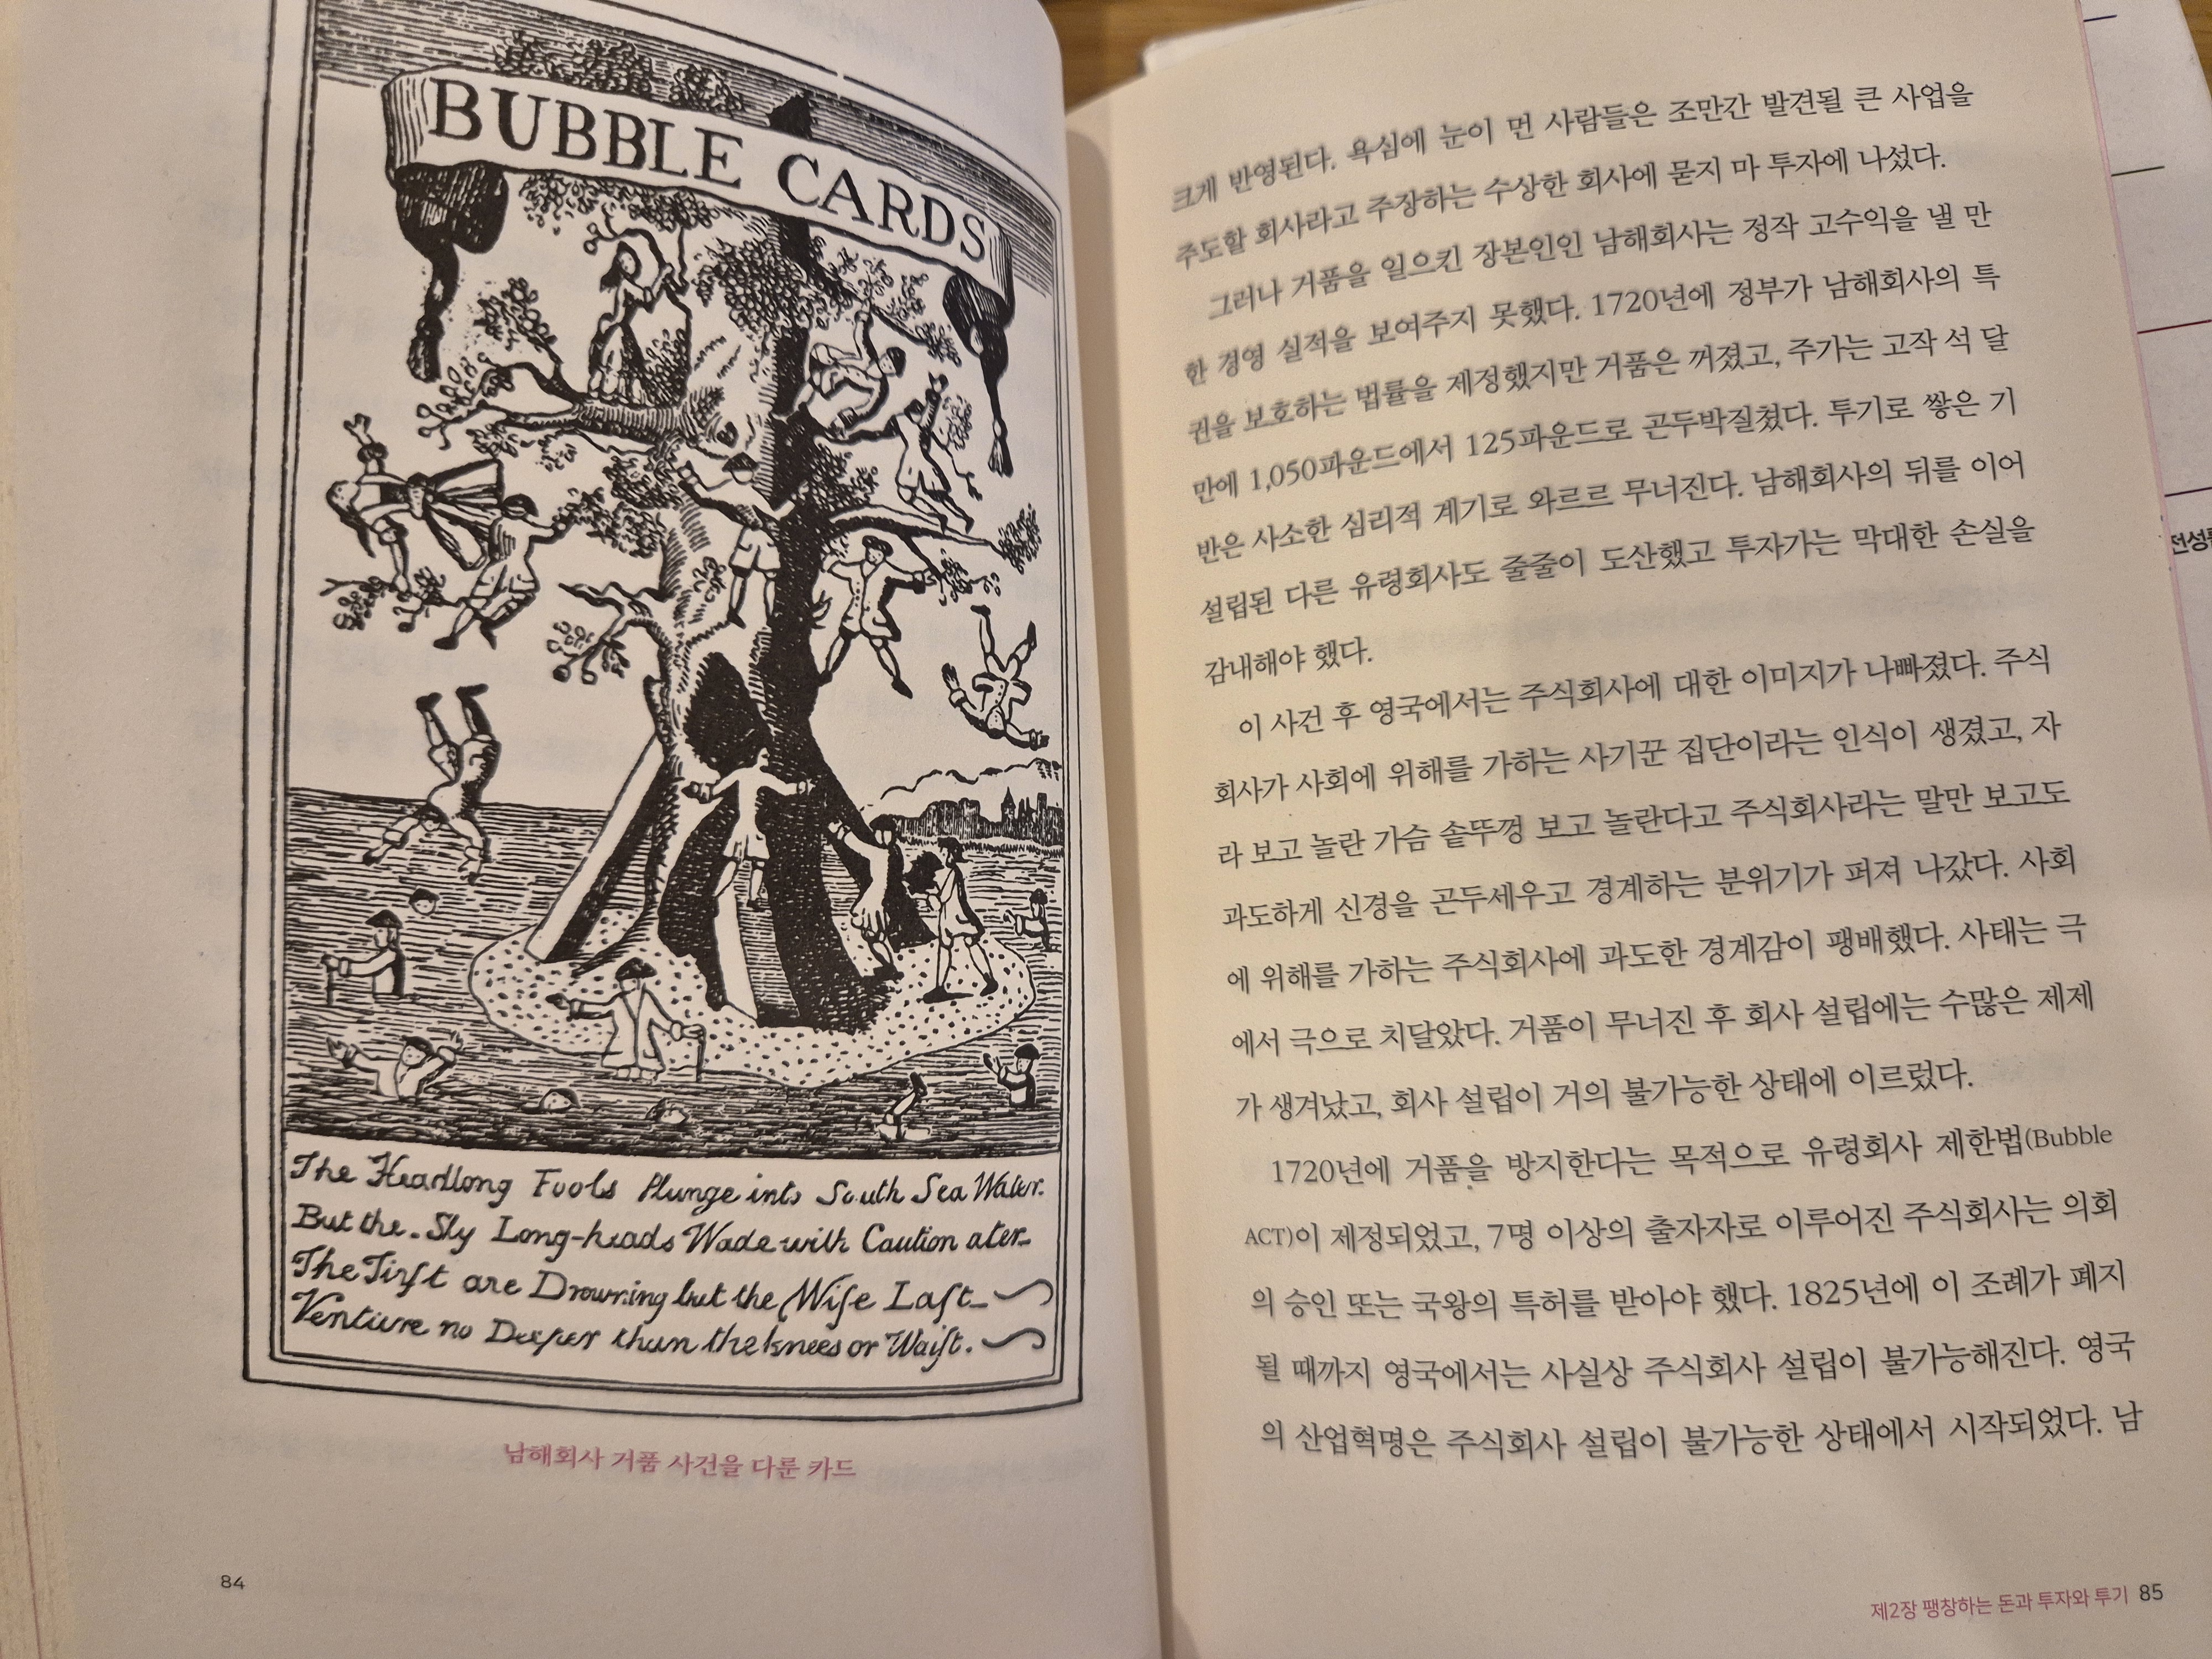 BUBBLE CARDS
The Headlong Fools Plunge into South Sea Water.
But the Sly Long-heads Wade with Caution ater
The Firſt are Drowning but the Wiſe Laſt
Venture no Deeper than the knees or Waiſt.
남해회사 거품 사건을 다룬 카드
84
크게 반영된다. 욕심에 눈이 먼 사람들은 조만간 발견될 큰 사업을
주도할 회사라고 주장하는 수상한 회사에 묻지 마 투자에 나섰다.
그러나 거품을 일으킨 장본인인 남해회사는 정작 고수익을 낼 만
한 경영 실적을 보여주지 못했다. 1720년에 정부가 남해회사의 특
권을 보호하는 법률을 제정했지만 거품은 꺼졌고, 주가는 고작 석 달
만에 1,050파운드에서 125파운드로 곤두박질쳤다. 투기로 쌓은 기
반은 사소한 심리적 계기로 와르르 무너진다. 남해회사의 뒤를 이어
설립된 다른 유령회사도 줄줄이 도산했고 투자가는 막대한 손실을
감내해야 했다.
이 사건 후 영국에서는 주식회사에 대한 이미지가 나빠졌다. 주식
회사가 사회에 위해를 가하는 사기꾼 집단이라는 인식이 생겼고, 자
라 보고 놀란 가슴 솥뚜껑 보고 놀란다고 주식회사라는 말만 보고도
과도하게 신경을 곤두세우고 경계하는 분위기가 퍼져 나갔다. 사회
에 위해를 가하는 주식회사에 과도한 경계감이 팽배했다. 사태는 극
에서 극으로 치달았다. 거품이 무너진 후 회사 설립에는 수많은 제제
가 생겨났고, 회사 설립이 거의 불가능한 상태에 이르렀다.
1720년에 거품을 방지한다는 목적으로 유령회사 제한법(Bubble
ACT)이 제정되었고, 7명 이상의 출자자로 이루어진 주식회사는 의회
의 승인 또는 국왕의 특허를 받아야 했다. 1825년에 이 조례가 폐지
될 때까지 영국에서는 사실상 주식회사 설립이 불가능해진다. 영국
의 산업혁명은 주식회사 설립이 불가능한 상태에서 시작되었다. 남
제2장 팽창하는 돈과 투자와 투기 85